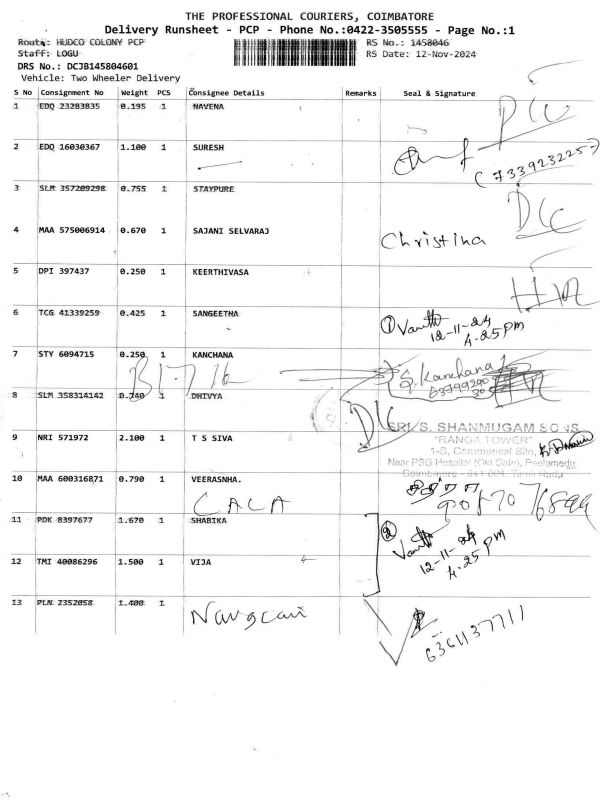 THE PROFESSIONAL COURIERS, COIMBATORE
Delivery Runsheet - PCP - Phone No.:0422-3505555 - Page No.:1
Route: HUDCO COLONY PCP RS No.: 1458046
Staff: LOGU RS Date: 12-Nov-2024
DRS No.: DCJB145804601
Vehicle: Two Wheeler Delivery
S No Consignment No Weight PCS Consignee Details Remarks Seal & Signature
1 EDQ 23283835 0.195 1 NAVENA
2 EDQ 16030367 1.100 1 SURESH
(7339232257)
3 SLM 357209298 0.755 1 STAYPURE
DLC
4 MAA 575006914 0.670 1 SAJANI SELVARAJ
Christina
5 DPI 397437 0.250 1 KEERTHIVASA
6 TCG 41339259 0.425 1 SANGEETHA
① 12-11-24
4.25 pm
7 STY 6094715 0.250 1 KANCHANA
Kanchana
8 SLM 358314142 0.740 1 DHIVYA
SRI S. SHANMUGAM SONS
"RANGA TOWER"
9 NRI 571972 2.100 1 T S SIVA
1-B, Commerical Site,
Near PSG Hospital (Old Gate), Peelamedu,
Coimbatore - 641 004. Tamil Nadu
10 MAA 600316871 0.790 1 VEERASNHA.
CALA
11 PDK 8397677 1.670 1 SHABIKA
② 12-11-24
4.25 pm
12 TMI 40086296 1.500 1 VIJA
13 PLN 2352058 1.400 1
6361137711